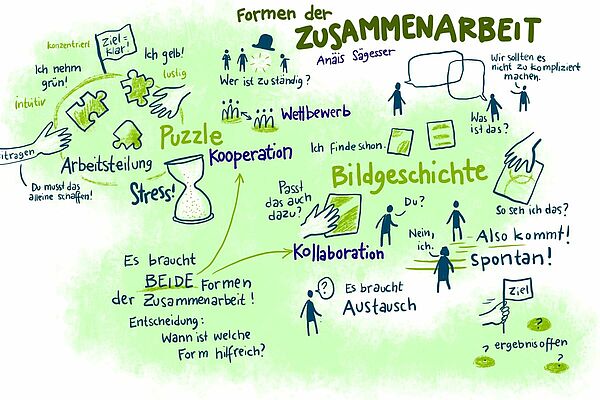 Formen der
ZUSAMMENARBEIT
Anäis Sägesser
konzentriert
Ziel =
klar!
Ich nehm
grün!
Ich gelb!
lustig
intuitiv
Puzzle
Arbeitsteilung
Du musst das
alleine schaffen!
Stress!
Wer ist zuständig?
Wettbewerb
Kooperation
Wir sollten es
nicht zu kompliziert
machen.
Was
ist das?
Ich finde schon.
Bildgeschichte
So seh ich das?
Passt
das auch
dazu?
Du?
Nein,
ich.
Also kommt!
Spontan!
Kollaboration
Es braucht
BEIDE Formen
der Zusammenarbeit!
Entscheidung:
Wann ist welche
Form hilfreich?
?
Es braucht
Austausch
Ziel
?
ergebnisoffen
?
?